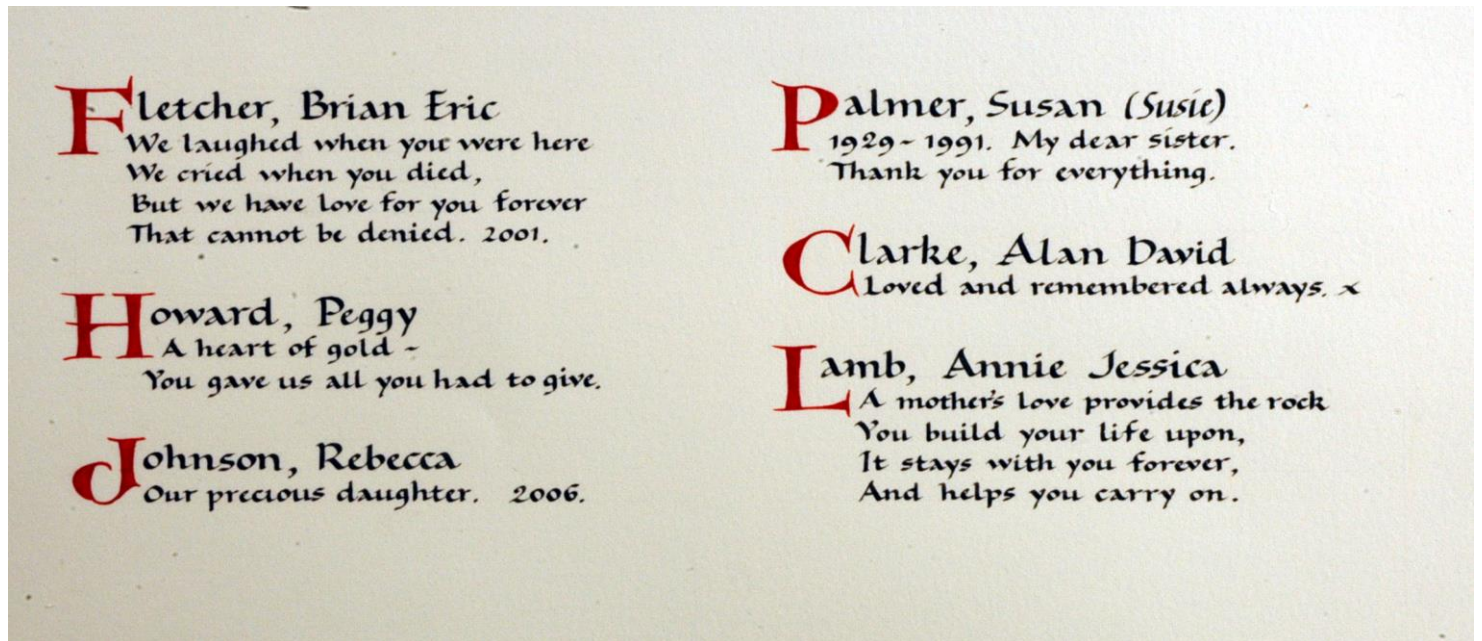 Fletcher, Brian Eric
We laughed when you were here
We cried when you died,
But we have love for you forever
That cannot be denied. 2001.
Howard, Peggy
A heart of gold -
You gave us all you had to give.
Johnson, Rebecca
Our precious daughter. 2006.
Palmer, Susan (Susie)
1929 - 1991. My dear sister.
Thank you for everything.
Clarke, Alan David
Loved and remembered always. x
Lamb, Annie Jessica
A mother's love provides the rock
You build your life upon,
It stays with you forever,
And helps you carry on.